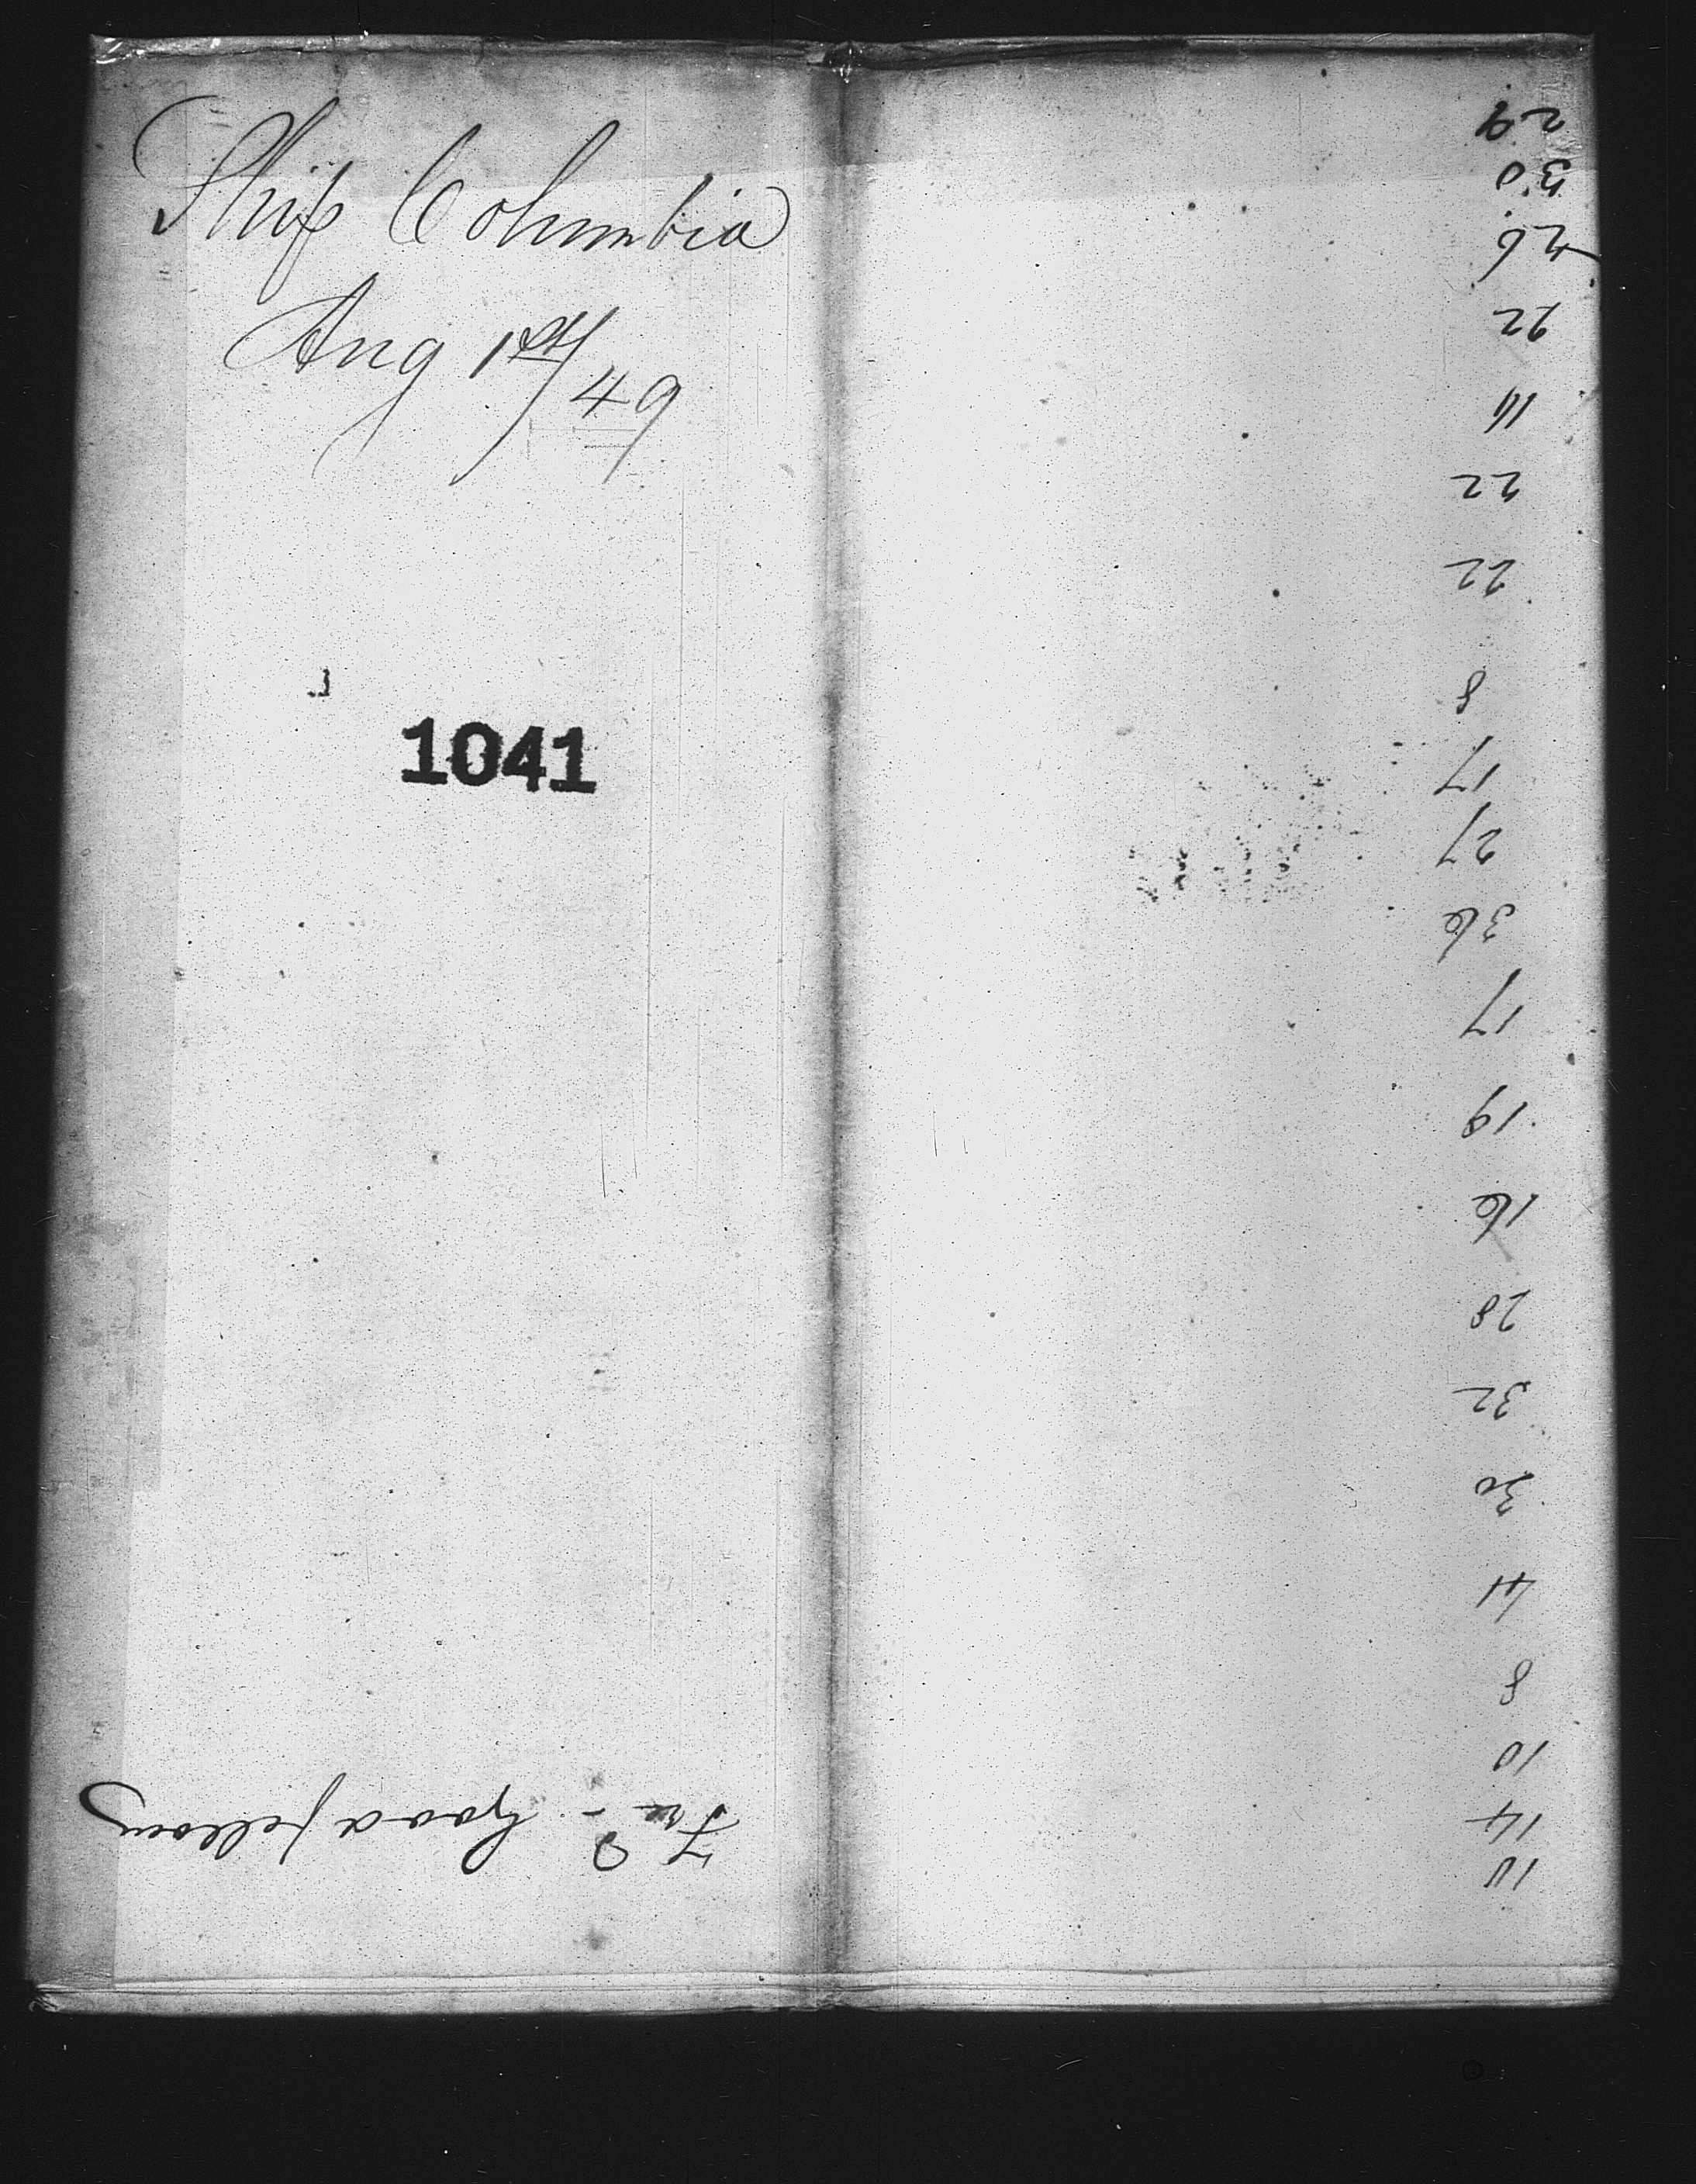 Ship Columbia
Aug 1st/49
1041
29
30
26
22
11
22
22
8
17
27
36
17
19
16
28
32
30
41
8
10
14
10